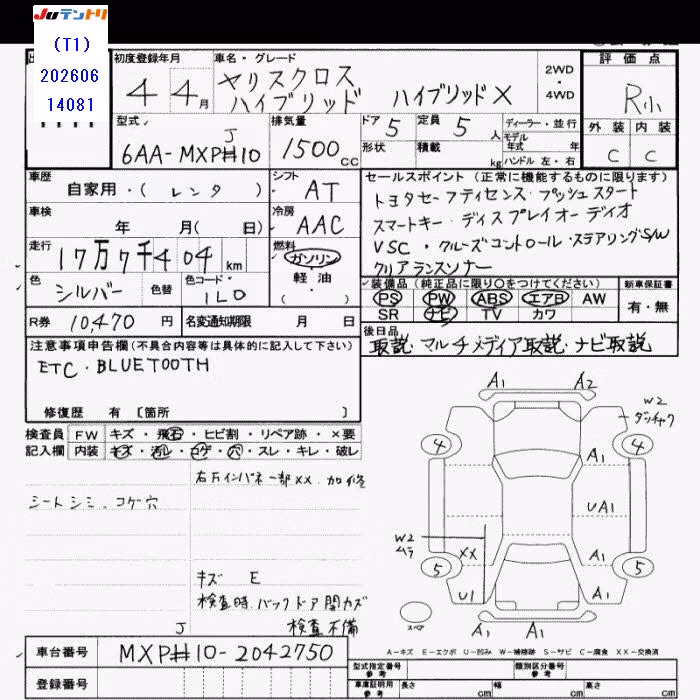 Juテントリ
(T1)
202606
14081
初度登録年月
4 4月
車名・グレード
ヤリスクロス
ハイブリッド ハイブリッドX
2WD
・
4WD
評価点
R小
外装 内装
C C
型式
J
6AA-MXPH10
排気量
1500cc
ドア 5
定員 5人
形状
積載 kg
ディーラー・並行
モデル
年式 年
ハンドル 左・右
車歴
自家用・( レンタ )
シフト
AT
車検
年 月( 日)
冷房
AAC
走行
17万7千404km
燃料
ガソリン
軽油
・
色
シルバー
色替
色コード・
1L0
R券 10,470円
名変通知期限 月 日
セールスポイント(正常に機能するものに限ります)
トヨタセーフティセンス・プッシュスタート
スマートキー・ディスプレイオーディオ
VSC・クルーズコントロール・ステアリングS/W
クリアランスソナー
装備品(純正品に限り○をつけてください)
新車保証書
PS PW ABS エアB AW
SR ナビ TV カワ
有・無
後日品
取説・マルチメディア取説・ナビ取説
注意事項申告欄(不具合内容等は具体的に記入して下さい)
ETC・BLUETOOTH
修復歴 有 〔箇所 〕
検査員
記入欄
FW キズ・飛石・ヒビ割・リペア跡・×要
内装 キズ・汚レ・コゲ・穴・スレ・キレ・破レ
右リインパネ一部××.加修
シートシミ、コゲ穴
キズ E
検査時、バックドア開カズ
検査不備
A1 A2
W2
ダッチャク
4 4
A1
UA1
W2
ムラ
XX
A1
5 5
U1 A1
スペア
A1 A1
A-キズ E-エクボ U-凹み W-補修跡 S-サビ C-腐食 XX-交換済
J
車台番号 MXPH10-2042750
登録番号
型式指定番号
参考
類別区分番号
参考
車庫証明用
参考
長さ cm
幅 cm
高さ cm